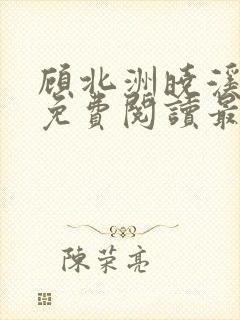 顾北洲曉溪
免費閱讀最
陳荣亮